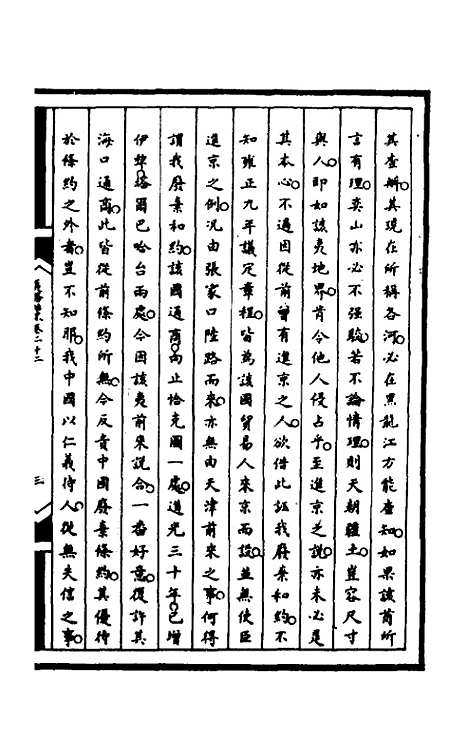 其查辦其現在所稱各河必在黑龍江方能查知如果該酋所
言有理奕山亦必不强駮若不論情理則天朝疆土豈容尺寸
與人即如該夷地界肯令他人侵占乎至進京之說亦未必是
其本心不過因從前曾有進京之人欲借此誣我廢棄和約不
知雍正九年議定章程皆為該國貿易人來京而設並無使臣
進京之例况由張家口陸路而來亦無由天津前來之事何得
謂我廢棄和約該國通商向止恰克圖一處道光三十年已增
伊犂塔爾巴哈台兩處今因該夷前來說合一番好意復許其
海口通商此皆從前條約所無今反責中國廢棄條約其優待
於條約之外者豈不知耶我中國以仁義待人從無失信之事
卷二十二
三